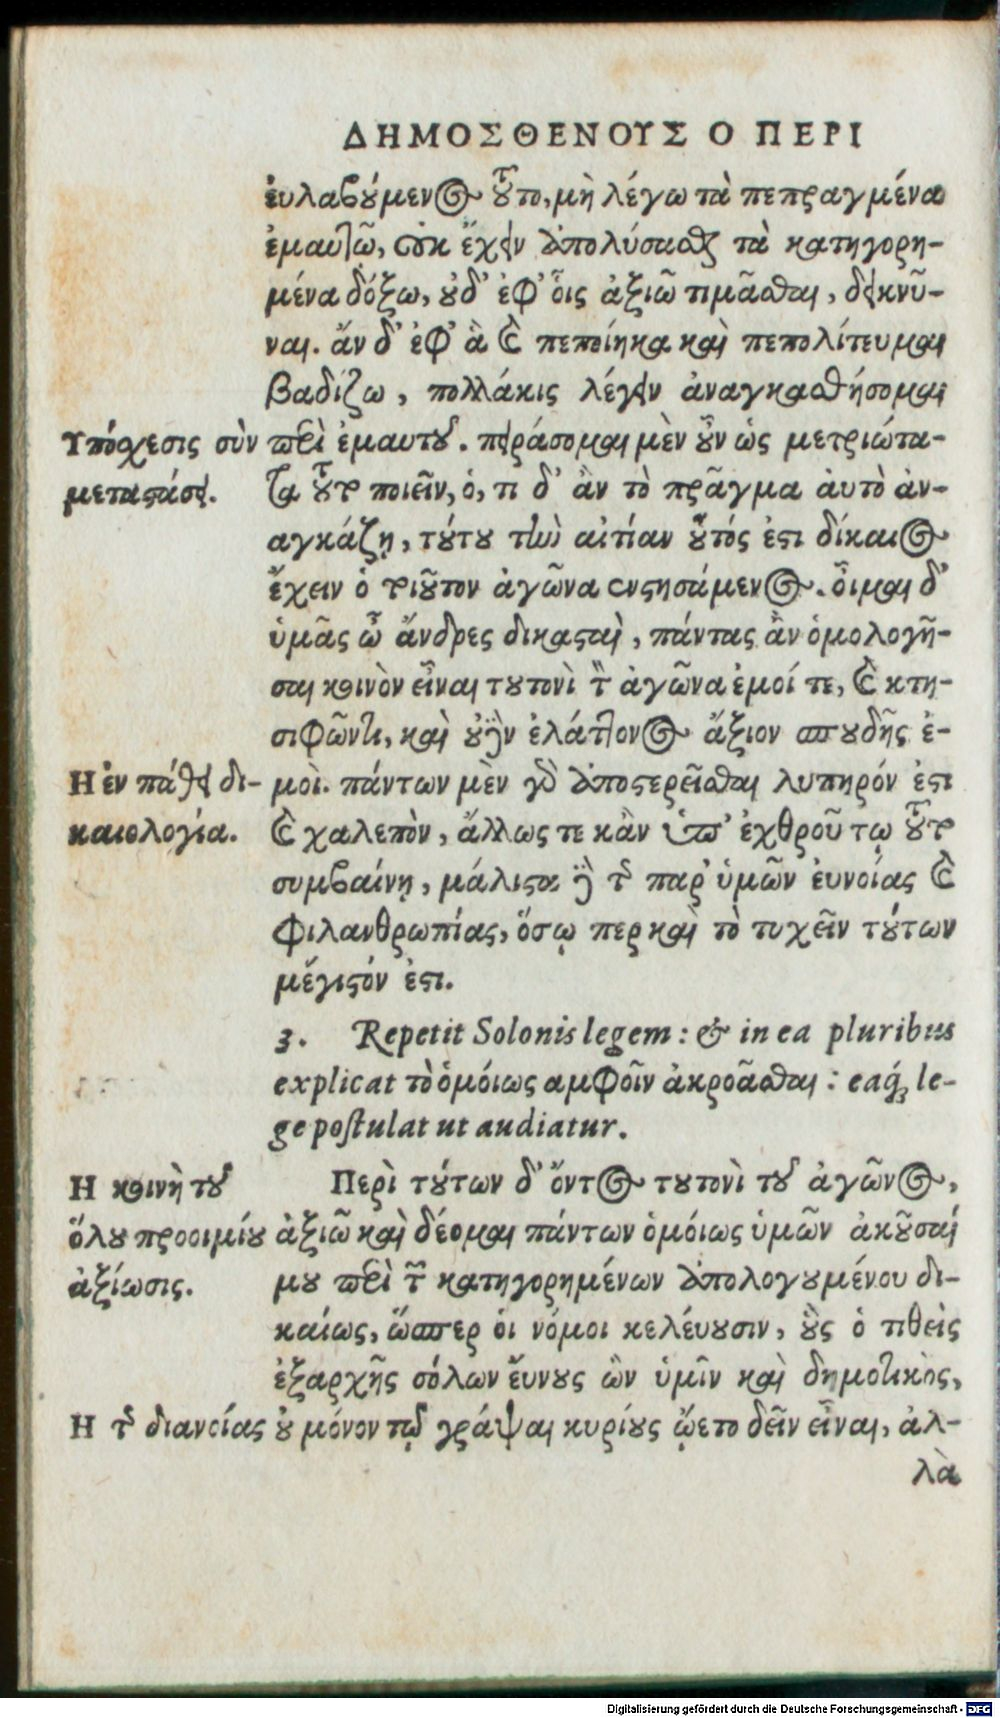 ΔΗΜΟΣΘΕΝΟΥΣ Ο ΠΕΡΙ
ἐυλαβούμενος τοῦτο, μὴ λέγω τὰ πεπραγμένα
ἐμαυτῷ, οὐκ ἔχειν ἀπολύσασθαι τὰ κατηγορη-
μένα δόξω, οὐδ' ἐφ' οἷς ἀξιῶ τιμᾶσθαι, δεικνύ-
ναι. ἄν δ' ἐφ' ἃ καὶ πεποίηκα καὶ πεπολίτευμαι
βαδίζω, πολλάκις λέγειν ἀναγκασθήσομαι
Υπόσχεσις σὺν
μεταστάσει.
περὶ ἐμαυτοῦ. πειράσομαι μὲν οὖν ὡς μετριώτα-
τα τοῦτο ποιεῖν, ὅ, τι δ' ἂν τὸ πρᾶγμα ἀυτὸ ἀν-
αγκάζῃ, τούτου τὴν αἰτίαν οὗτός ἐστι δίκαιος
ἔχειν ὁ τοιοῦτον ἀγῶνα ἐνστησάμενος. οἶμαι δ'
ὑμᾶς ὦ ἄνδρες δικασταὶ, πάντας ἂν ὁμολογῆ-
σαι κοινὸν εἶναι τουτονὶ τὸν ἀγῶνα ἐμοί τε, καὶ κτη-
σιφῶντι, καὶ οὐδὲν ἐλάττονος ἄξιον σπουδῆς ἐ-
Η ἐν πάθει δι-
καιολογία.
μοὶ. πάντων μὲν γὰρ ἀποστερεῖσθαι λυπηρόν ἐστι
καὶ χαλεπὸν, ἄλλως τε κἂν ὑπ' ἐχθροῦ τῳ τοῦτο
συμβαίνῃ, μάλιστα δὲ τῆς παρ' ὑμῶν ἐυνοίας καὶ
φιλανθρωπίας, ὅσῳ περ καὶ τὸ τυχεῖν τούτων
μέγιστόν ἐστι.
3. Repetit Solonis legem: & in ea pluribus
explicat τὸ ὁμόιως αμφοῖν ἀκροᾶσθαι: eaq́; le-
ge postulat ut audiatur.
Η κοινὴ τοῦ
ὅλου προοιμίου
ἀξίωσις.
Περὶ τούτων δ' ὄντος τουτονὶ τοῦ ἀγῶνος,
ἀξιῶ καὶ δέομαι πάντων ὁμόιως ὑμῶν ἀκοῦσαί
μου περὶ τῶν κατηγορημένων ἀπολογουμένου δι-
καίως, ὥσπερ ὁι νόμοι κελέυουσιν, οὓς ὁ τιθεὶς
ἐξαρχῆς σόλων ἔυνους ὢν ὑμῖν καὶ δημοτικὸς,
Η τῆς διανοίας
οὐ μόνον τῷ γράψαι κυρίους ᾤετο δεῖν εἶναι, ἀλ-
λὰ
Digitalisierung gefördert durch die Deutsche Forschungsgemeinschaft - DFG